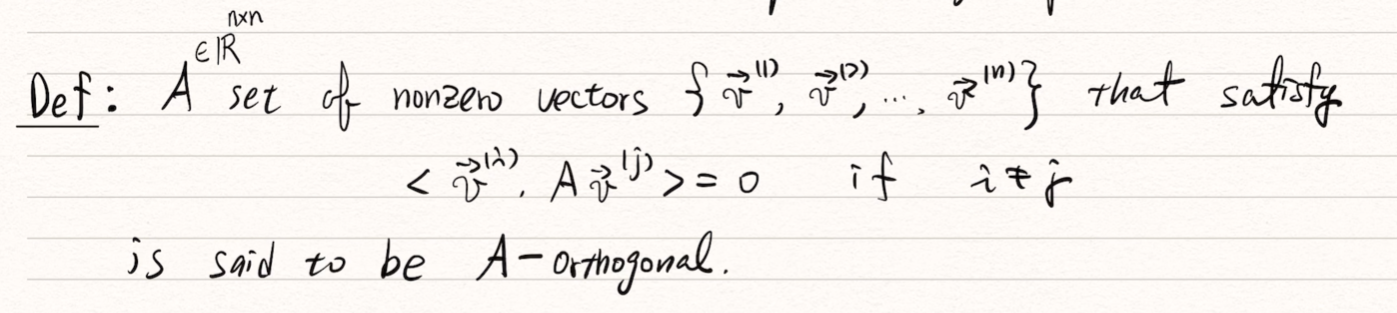 ∈ℝⁿˣⁿ
Def: A set of nonzero vectors {v⃗⁽¹⁾, v⃗⁽²⁾, ..., v⃗⁽ⁿ⁾} that satisfy
< v⃗⁽ⁱ⁾, A v⃗⁽ʲ⁾ > = 0 if i ≠ j
is said to be A-orthogonal.